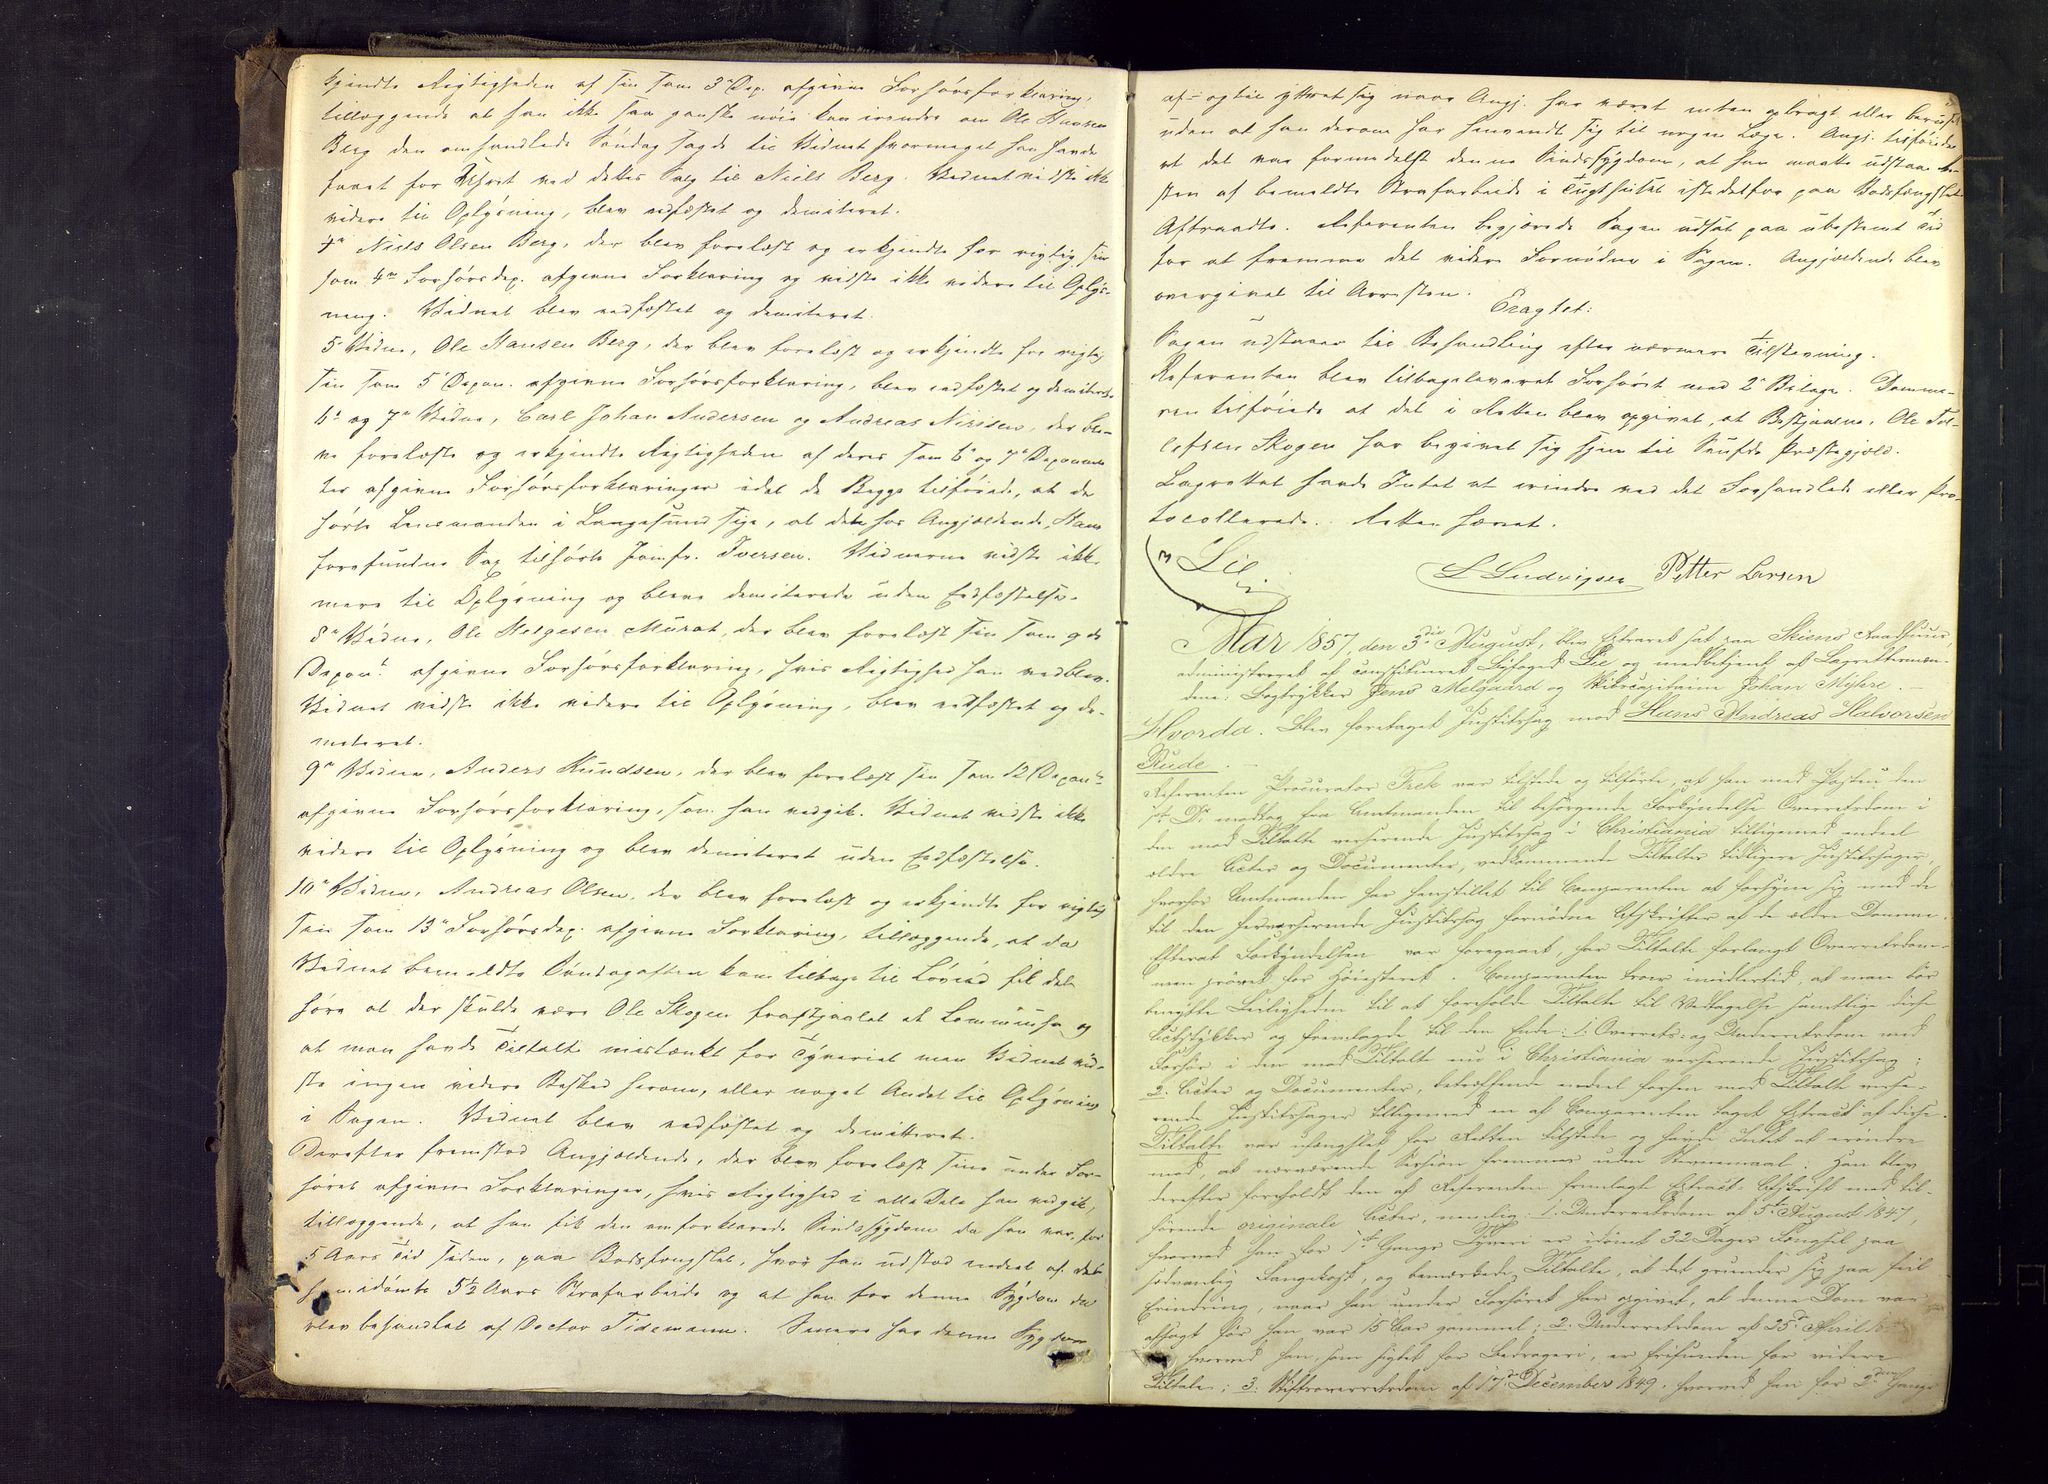 kjendte Rigtigheden af sin som 3' Dep. afgivne Forhørsforklaring,
tillæggende at han ikke saa ganske nøie kan erindre om Ole Hansen
Berg den omhandlede Søndag sagde til Vidnet hvormeget han havde
faaet for Uhret ved dettes Salg til Niels Berg. Vidnet vidste ikke
videre til Oplysning, blev edfæstet og demiteret.
4' Niels Olsen Berg, der blev forelæst og erkjendte for rigtig sin
som 4' Forhørsdep. afgivne Forklaring og vidste ikke videre til Oplys-
ning. Vidnet blev edfæstet og demiteret.
5' Vidne, Ole Hansen Berg, der blev forelæst og erkjendte for rigtig
sin som 5' Depon. afgivne Forhørsforklaring, blev edfæstet og demiteret.
6' og 7' Vidne, Carl Johan Andersen og Andreas Nirisen, der ble-
ve forelæste og erkjendte Rigtigheden af deres som 6' og 7' Deponen-
ter afgivne Forhørsforklaringer idet de Begge tilføiede, at de
hørte Lensmanden i Langesund sige, at det hos Angjældende, Ham
forefundne Sax tilhørte Jomfr. Iversen. Vidnerne vidste ikke
mere til Oplysning og bleve demiterede uden Edfæstelse.
8' Vidne, Ole Helgesen Murat, der blev forelæst sin som 9de
Depont. afgivne Forhørsforklaring, hvis Rigtighed han vedblev.
Vidnet vidste ikke videre til Oplysning, blev edfæstet og de-
miteret.
9' Vidne, Anders Knudsen, der blev forelæst sin som 12 Depont.
afgivne Forhørsforklaring, som han vedgik. Vidnet vidste ikke
videre til Oplysning og blev demiteret uden Edfæstelse.
10' Vidne, Andreas Olsen, der blev forelæst og erkjendte for rigtig
sin som 13' Forhørsdep. afgivne Forklaring, tillæggende, at da
Vidnet bemeldte Søndagaften kom tilbage til Løvrød fik det
høre at der skulde være Ole Skogen frastjaalet et Lommeuhr og
at man havde Tiltalte mistænkt for Tyveriet men Vidnet vid-
ste ingen videre Besked herom, eller noget Andet til Oplysning
i Sagen. Vidnet blev edfæstet og demitteret.
Derefter fremstod Angjældende, der blev forelæst sine under For-
høret afgivne Forklaringer, hvis Rigtighed i alle Dele han vedgik,
tillæggende, at han fik den omforklarede Sindssygdom da han var, for
5 Aars Tid siden, paa Bodsfængslet, hvor han udstod endeel af det
ham idømte 5½ Aars Strafarbeide og at han for denne Sygdom da
blev behandlet af Doctor Tidemann. Senere har denne Sygdom
af- og til yttret sig naar Angj. har været enten opbragt eller beruset
uden at han derom har henvendt sig til nogen Læge. Angj. tilføiede
at det var formedelst denne Sindssygdom, at han maatte udstaa Re-
sten af bemeldte Strafarbeide i Tugthuset istedetfor paa Bodsfængslet.
Aftraadte. Referenten begjærede Sagen udsat paa ubestemt Tid
for at fremme det videre Fornødne i Sagen. Angjældende blev
overgivet til Arresten.
Eragtet:
Sagen udstaaer til Behandling efter nærmere Tilstevning.
Referenten blev tilbageleveret Forhøret med 2 Bilage. Domme-
ren tilføiede at det i Retten blev opgivet, at Bestjaalne, Ole Tol-
lefsen Skogen har begivet sig hjem til Saufde Præstegjæld.
Lagrettet havde Intet at erindre ved det Forhandlede eller Pro-
tocollerede. Retten hævet.
Lie
L Ludvigsen Petter Larsen
Aar 1857, den 3die August, blev Extraret sat paa Skiens Raadhuus,
administreret af constitueret Byfoged Lie og medbetjent af Lagrettemæn-
dene, Bogtrykker Jens Melgaard og Skibscapitaine Johan Myhre. —
Hvorda. Blev foretaget Justitssag mod Hans Andreas Halvorsen
Rude. —
Referenten Procurator Frek var tilstede og tilførte, at han med Posten den
1ste Ds. modtog fra Amtmanden til behørgende Forkyndelse Overretsdom i
den mod Tiltalte verserende Justitssag i Christiania tilligemed endeel
ældre Acter og Documenter, vedkommende Tiltaltes tidligere Justitssager,
hvorhos Amtmanden har henstillet til Comparenten at forsyne sig med de
til den herværserende Justitssag fornødne Afskrifter af de ældre Domme.
Efterat Forkyndelsen var foregaaet, har Tiltalte forlangt Overretsdom-
men prøvet for Høiesteret. Comparenten troer imidlertid, at man bør
benytte Leiligheden til at foreholde Tiltalte til Vedtagelse samtlige disse
Actstykker og fremlagde til den Ende: 1. Overrets- og Underretsdom med
Forhør i den mod Tiltalte nu i Christiania verserende Justitssag;
2. Acter og Documenter, betræffende endeel forhen mod Tiltalte verse-
rende Justitssager tilligemed en af Comparenten taget Extract af disse.
Tiltalte var ufængslet for Retten tilstede og havde Intet at erindre
mod, at nærværende Session fremmes uden Stevnemaal. Han blev
derefter foreholdt den af Referenten fremlagte Extract Afskrift med til-
hørende originale Acter, nemlig: 1. Underretsdom af 5te August 1847,
hvorved han for 1ste Gangs Tyveri er idømt 32 Dages Fængsel paa
sædvanlig Fangekost, og bemærkede Tiltalte, at det grunder sig paa feil
Erindring, naar han under Forhøret har opgivet, at denne Dom var
afsagt før han var 15 Aar gammel; 2. Underretsdom af 25de April
hvorved han, som sigtet for Bedrageri, er frifunden for videre
Tiltale; 3. Stiftsoverretsdom af 17de December 1849, hvorved han for 2den Gangs